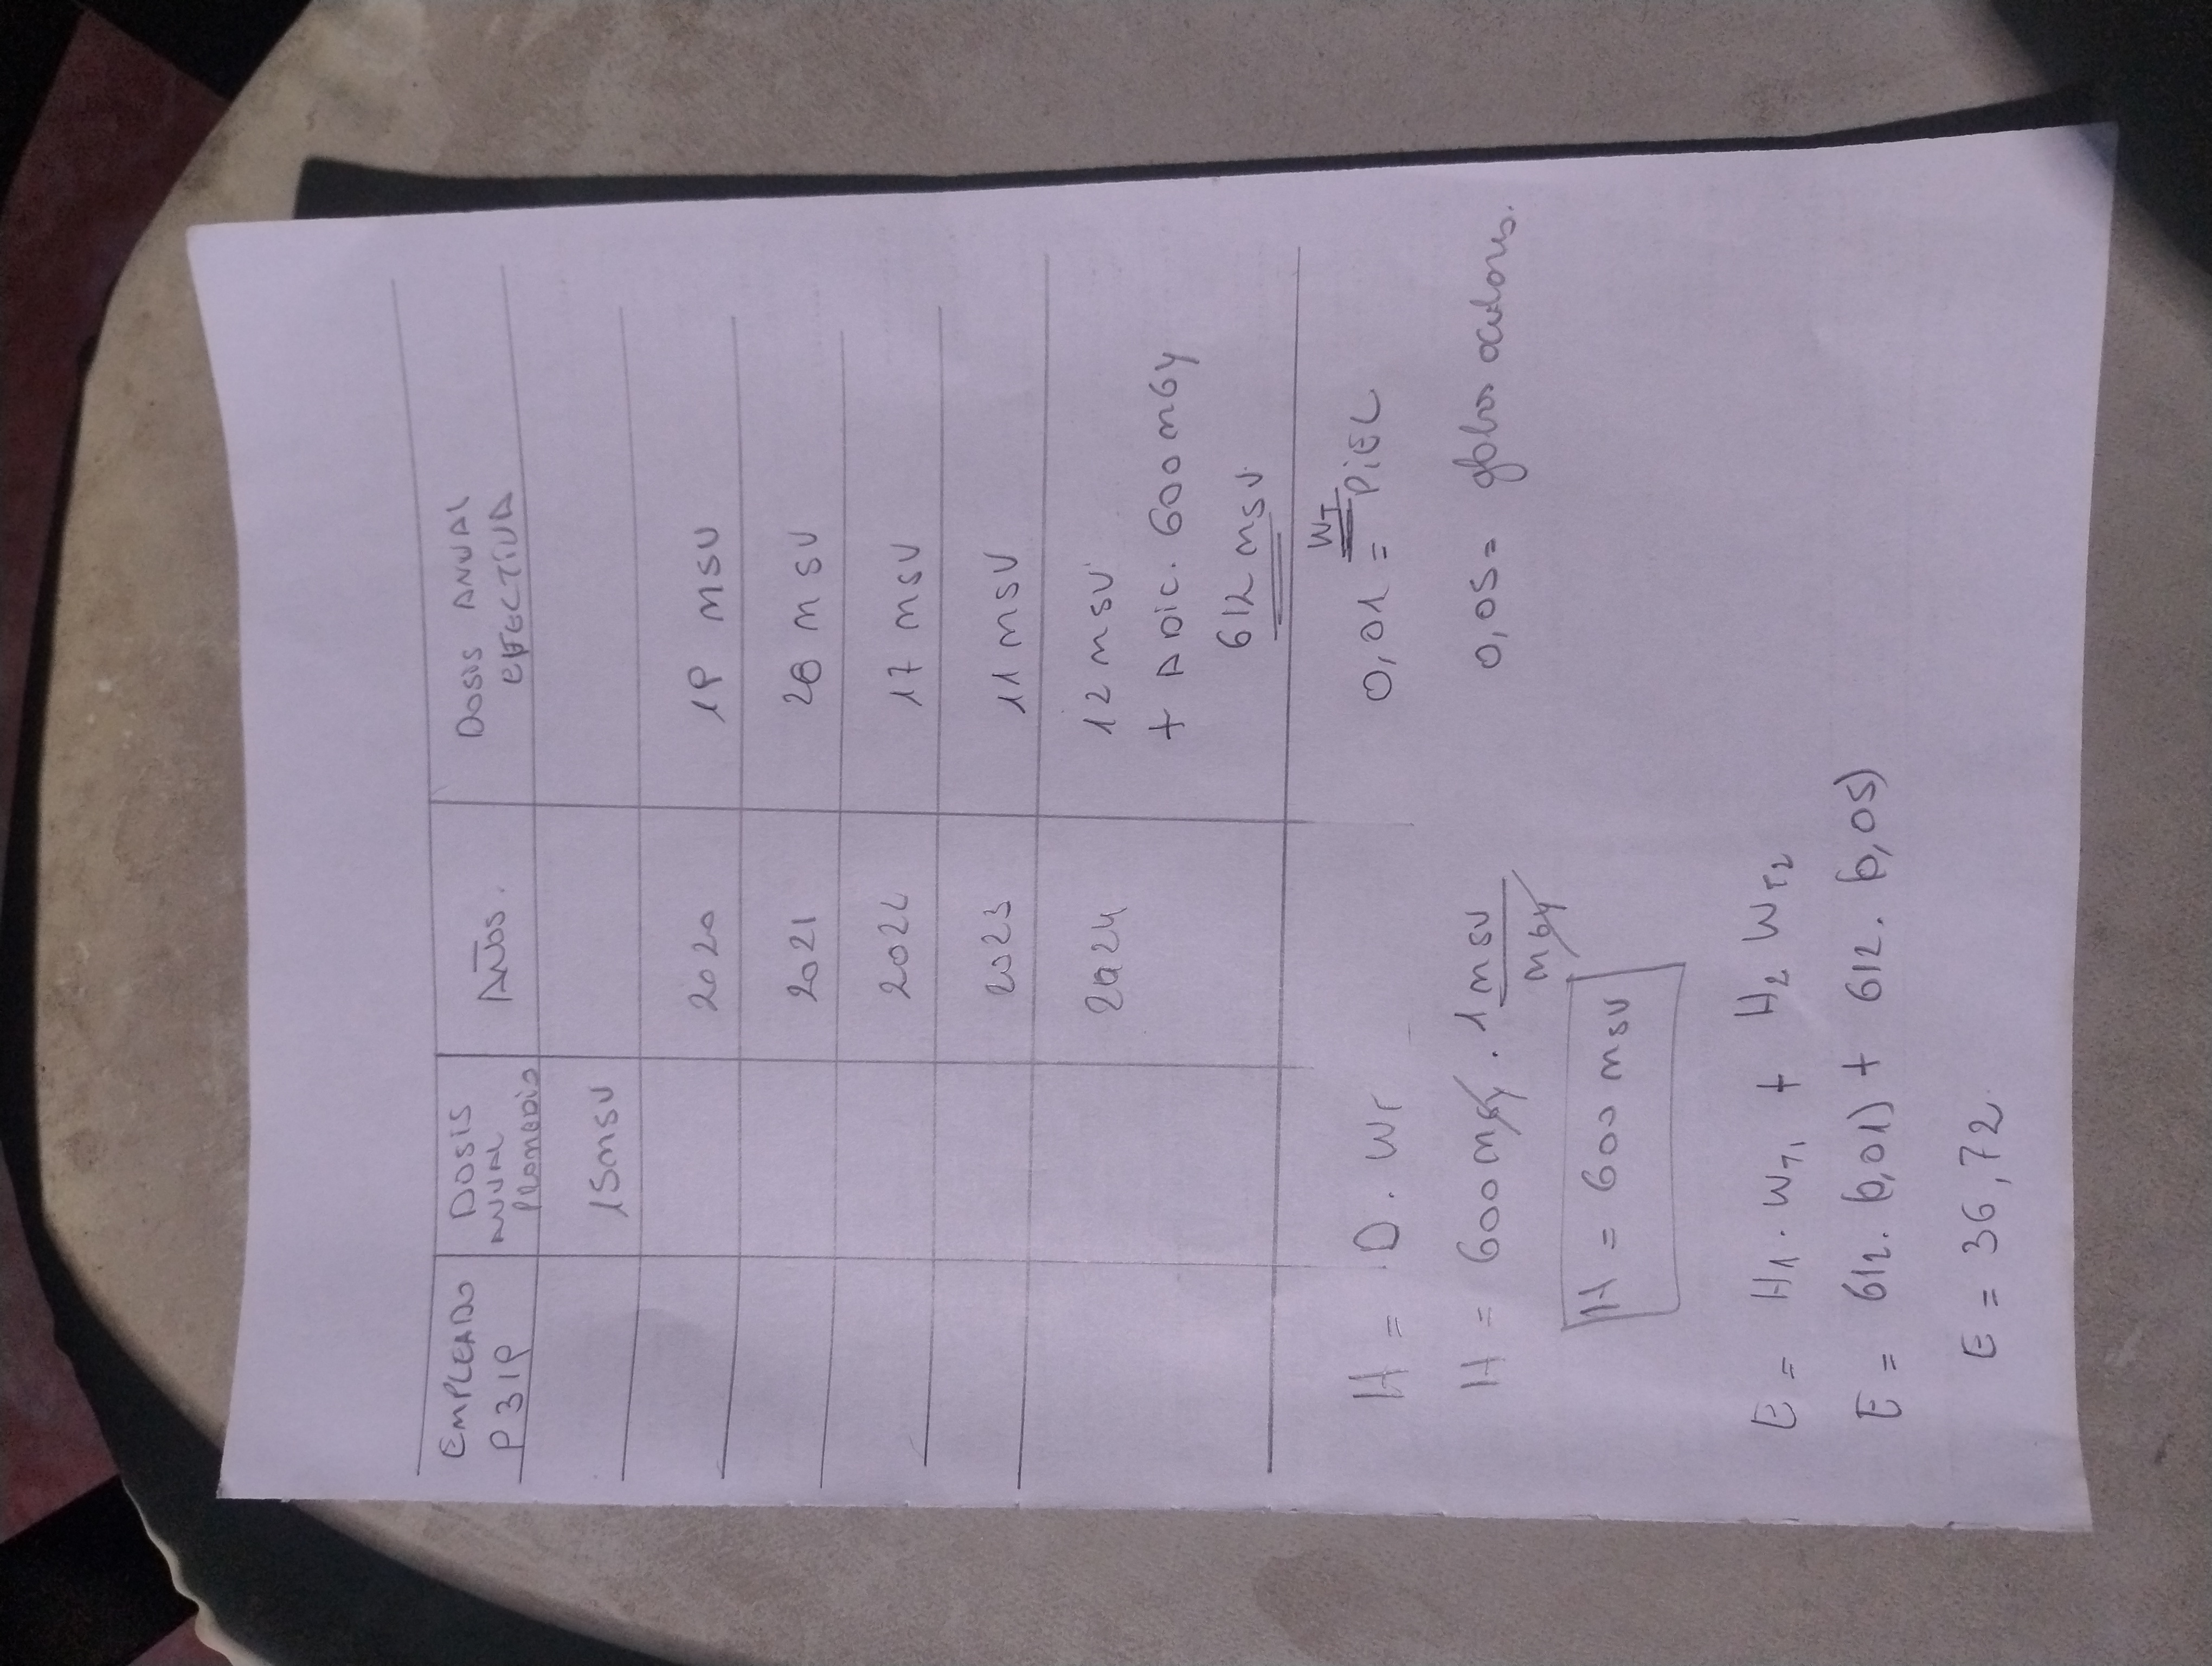 EMPLEADO P319
DOSIS ANUAL PROMEDIO
AÑOS.
DOSIS ANUAL EFECTIVA
15 mSV
2020 19 mSV
2021 mSV
2022 17 mSV
2023 11 mSV
2024 12 mSV
+ ADIC. 600 mGy
612 mSV
H = D . Wr
H = 600 mGy . 1 mSV / mGy
H = 600 mSV
WT
0,01 = PIEL
0,05 = globos oculares.
E = H1 . WT1 + H2 WT2
E = 612. (0,01) + 612. (0,05)
E = 36,72